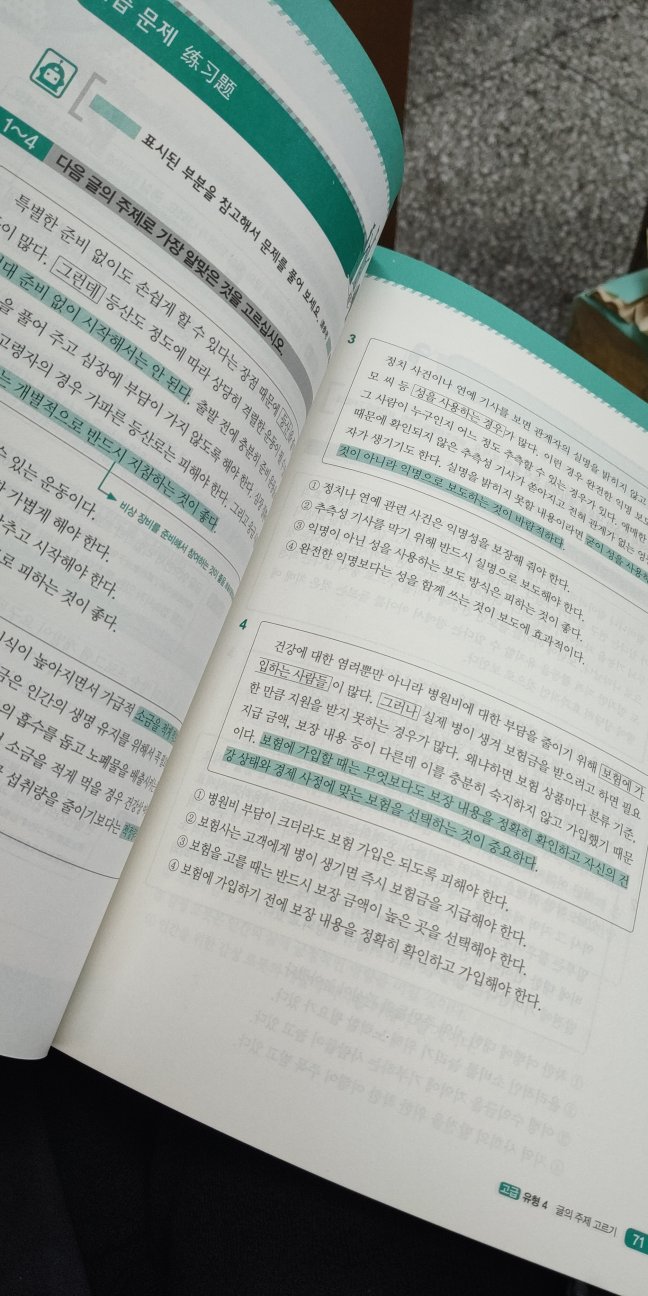 문제 练习题
표시된 부분을 참고해서 문제를 풀어 보세요.
1~4 다음 글의 주제로 가장 알맞은 것을 고르십시오.
특별한 준비 없이도 손쉽게 할 수 있다는 장점 때문에
이 많다. 그런데 등산도 정도에 따라 상당히 격렬한 운동이
준비 없이 시작해서는 안 된다. 출발 전에 충분히 준비
을 풀어 주고 심장에 부담이 가지 않도록 해야 한다.
고령자의 경우 가파른 등산로는 피해야 한다. 그리고
는 개별적으로 반드시 지참하는 것이 좋다.
비상 장비를 준비해서 참여하는 것이
수 있는 운동이다.
가볍게 해야 한다.
추고 시작해야 한다.
로 피하는 것이 좋다.
식이 높아지면서 가급적 소금을 적게
금은 인간의 생명 유지를 위해서
의 흡수를 돕고 노폐물을 배출시키는
소금을 적게 먹을 경우
섭취량을 줄이기보다는
3
정치 사건이나 연예 기사를 보면 관계자의 실명을 밝히지 않고
모 씨 등 성을 사용하는 경우가 많다. 이런 경우 완전한 익명 보도
그 사람이 누구인지 어느 정도 추측할 수 있는 경우가 있다. 애매한
때문에 확인되지 않은 추측성 기사가 쏟아지고 전혀 관계가 없는
자가 생기기도 한다. 실명을 밝히지 못할 내용이라면 굳이 성을 사용
것이 아니라 익명으로 보도하는 것이 바람직하다.
① 정치나 연예 관련 사건은 익명성을 보장해 줘야 한다.
② 추측성 기사를 막기 위해 반드시 실명으로 보도해야 한다.
③ 익명이 아닌 성을 사용하는 보도 방식은 피하는 것이 좋다.
④ 완전한 익명보다는 성을 함께 쓰는 것이 보도에 효과적이다.
4
건강에 대한 염려뿐만 아니라 병원비에 대한 부담을 줄이기 위해 보험에 가
입하는 사람들이 많다. 그러나 실제 병이 생겨 보험금을 받으려고 하면 필요
한 만큼 지원을 받지 못하는 경우가 많다. 왜냐하면 보험 상품마다 분류 기준,
지급 금액, 보장 내용 등이 다른데 이를 충분히 숙지하지 않고 가입했기 때문
이다. 보험에 가입할 때는 무엇보다도 보장 내용을 정확히 확인하고 자신의 건
강 상태와 경제 사정에 맞는 보험을 선택하는 것이 중요하다.
① 병원비 부담이 크더라도 보험 가입은 되도록 피해야 한다.
② 보험사는 고객에게 병이 생기면 즉시 보험금을 지급해야 한다.
③ 보험을 고를 때는 반드시 보장 금액이 높은 곳을 선택해야 한다.
④ 보험에 가입하기 전에 보장 내용을 정확히 확인하고 가입해야 한다.
고급 유형 4 글의 주제 고르기 71